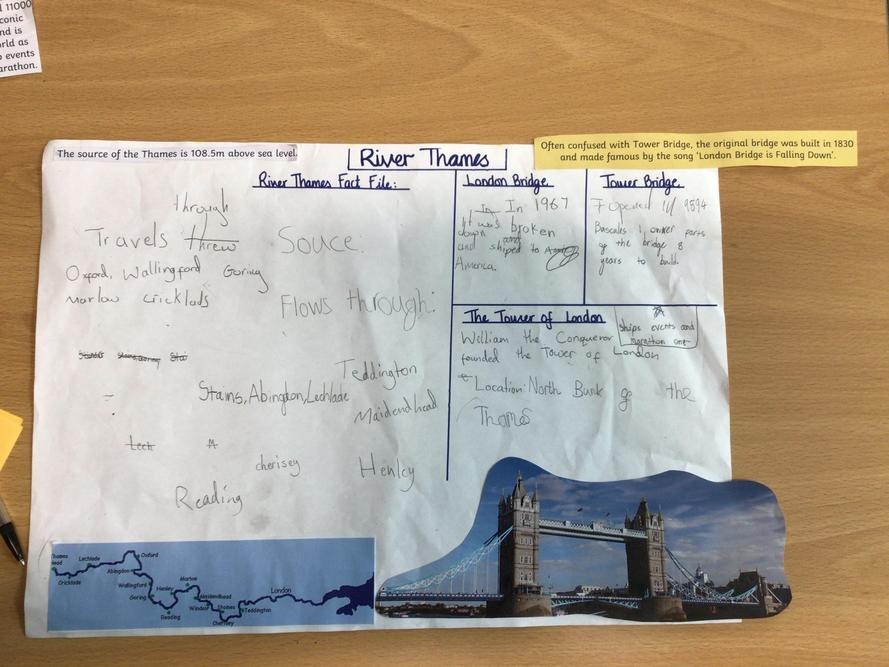 11000
conic
nd is
rld as
events
arathon.
The source of the Thames is 108.5m above sea level.
River Thames
Often confused with Tower Bridge, the original bridge was built in 1830
and made famous by the song 'London Bridge is Falling Down'.
River Thames Fact File:
through
Travels threw
Oxford, Wallingford Goring
Marlow cricklads
Souce:
Flows through:
Teddington
Stains, Abingdon, Lechlade
Maidendhead
Lech
cherisey
Henley
Reading
London Bridge
In In 1967
It was broken
down and
and shiped to
America.
Tower Bridge
opened
Bascules
of the bridge 8
years to build.
Ships events and
marathon
The Tower of London
William the Conqueror
founded the Tower of London
Location: North Bank of the
Thames
Thames
Head
Lechlade
Oxford
Cricklade
Abingdon
Wallingford
Goring
Henley
Marlow
Reading
Maidenhead
Windsor
Staines
Chertsey
Teddington
London